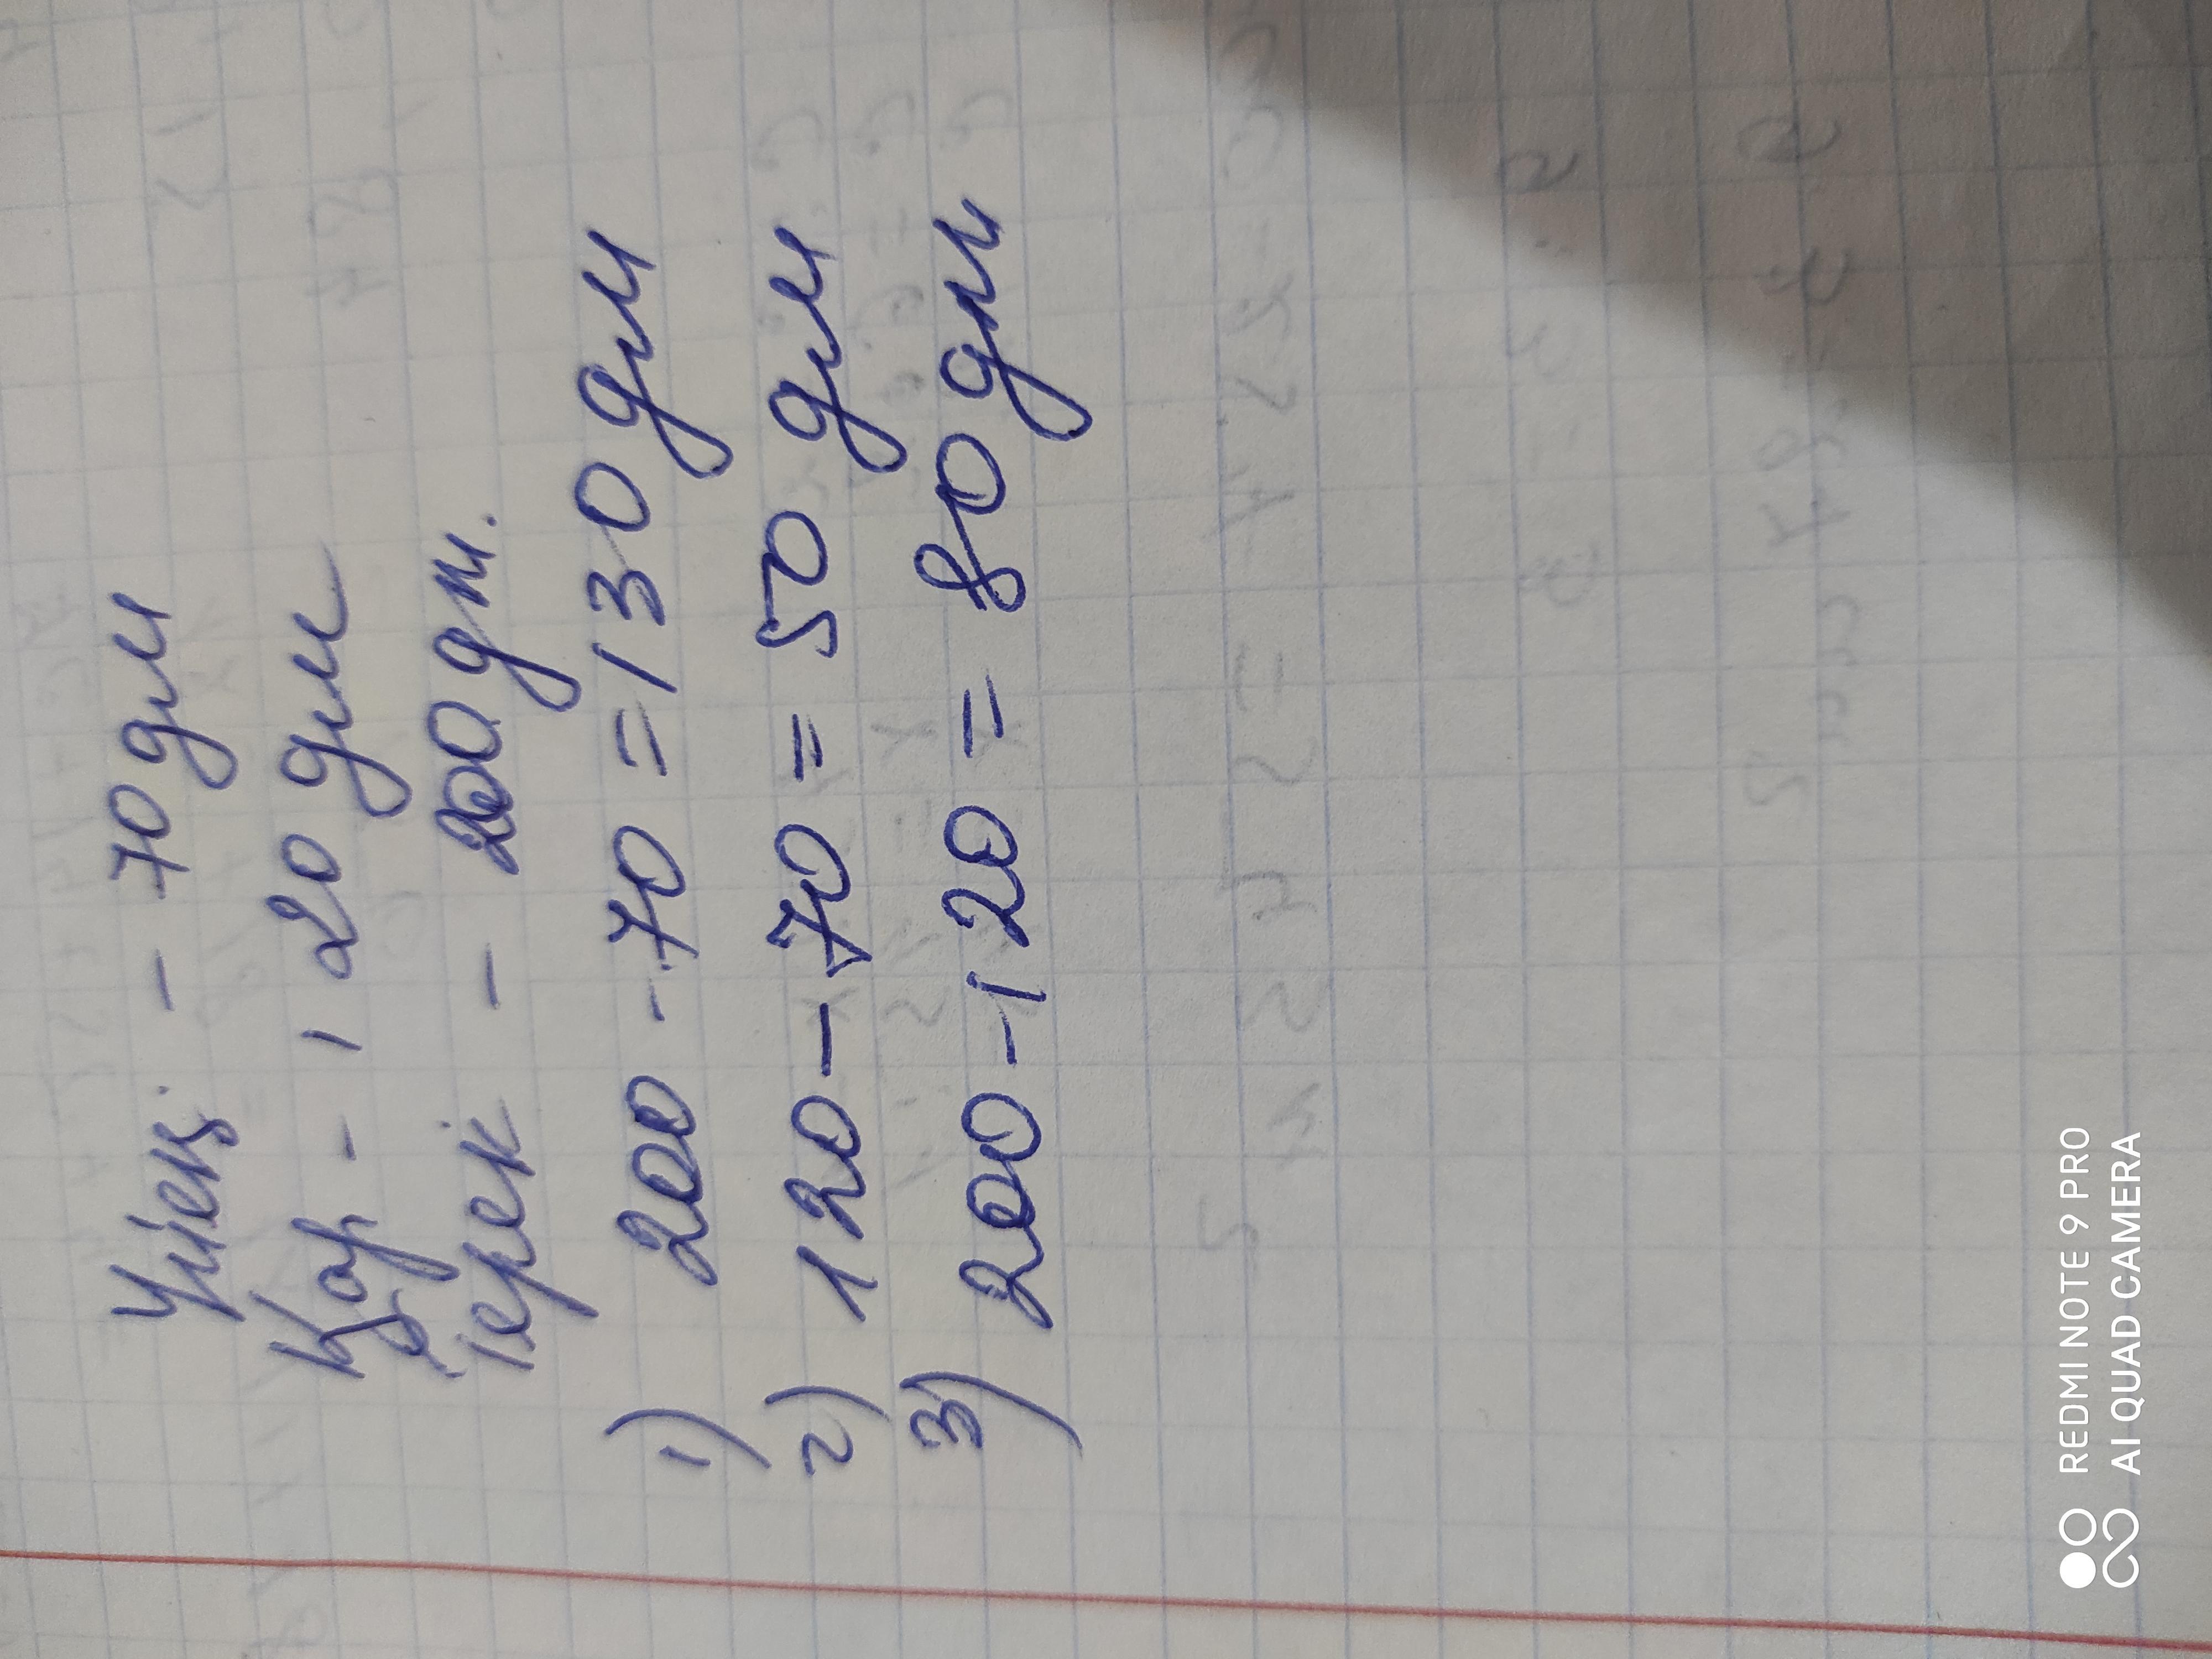 Үйеңкі - 70 дм
Қар - 120 дм
Терек - 200 дм.
1) 200 - 70 = 130 дм
2) 120 - 70 = 50 дм
3) 200 - 120 = 80 дм
REDMI NOTE 9 PRO
AI QUAD CAMERA